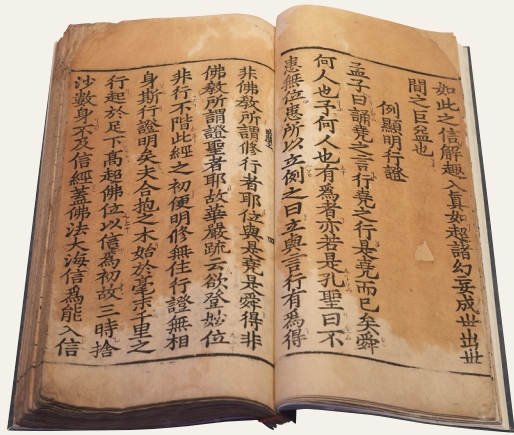 如此之信解趣入真如超諸幻妄成世出世
間之巨益也
例顯明行證
孟子曰誦堯之言行堯之行是堯而已矣舜
何人也予何人也有爲者亦若是孔聖曰不
患無位患所以立例之曰立與言行有爲得
非佛教所謂修行者耶位與是堯是舜得非
佛教所謂證聖者耶故華嚴疏云欲登妙位
非行不階此經之初便明修無住行證無相
身斯行證明矣夫合抱之木始於毫末千里之
行起於足下高超佛位以信爲初故三時捨
沙數身不及信經蓋佛法大海信爲能入信